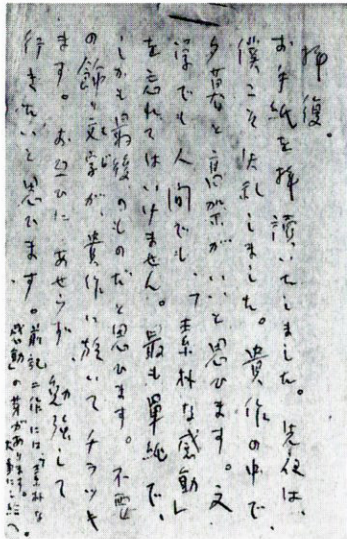 拝復。
お手紙を拝讀いたしました。先夜は、
僕こそ失礼しました。貴作の中で、
夕暮と高架がいいと思ひます。文
学でも人間でも、「素朴な感動」
を忘れてはいけません。最も單純で、
しかも最後のものだと思ひます。不要
の飾り文字が、貴作に於いてチラツキ
ます。お互ひにあせらず勉強して
行きたいと思ひます。前記二作には「素朴な
感動」の芽があります。
大事に